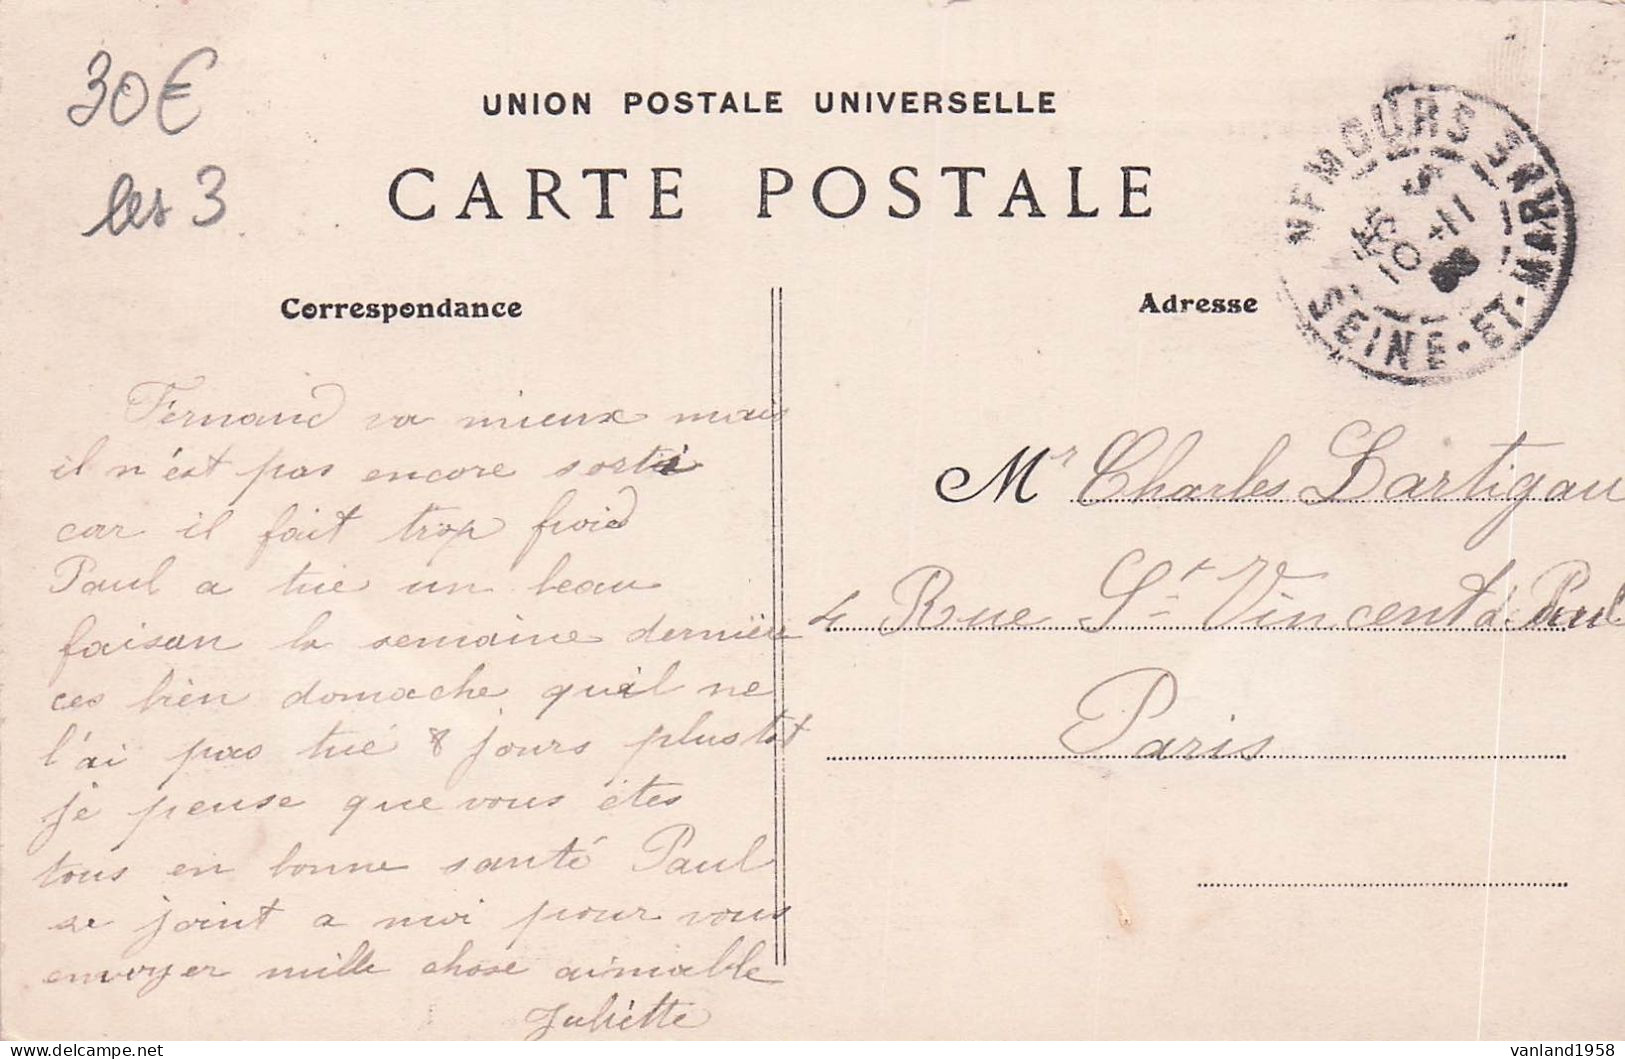 30€
les 3
UNION POSTALE UNIVERSELLE
CARTE POSTALE
NEMOURS SEINE-ET-MARNE
10 -11
08
Correspondance
Adresse
Fernand va mieux mais
il n'est pas encore sortie
car il fait trop froid
Paul a tué un beau
faisan la semaine dernière
ces bien domache quil ne
l'ai pas tué 8 jours plustot
je pense que vous êtes
tous en bonne santé Paul
se joint a moi pour vous
envoyer mille chose aimable
Juliette
Mr Charles Lartigau
4 Rue St Vincent de Paul
Paris
vanland1958